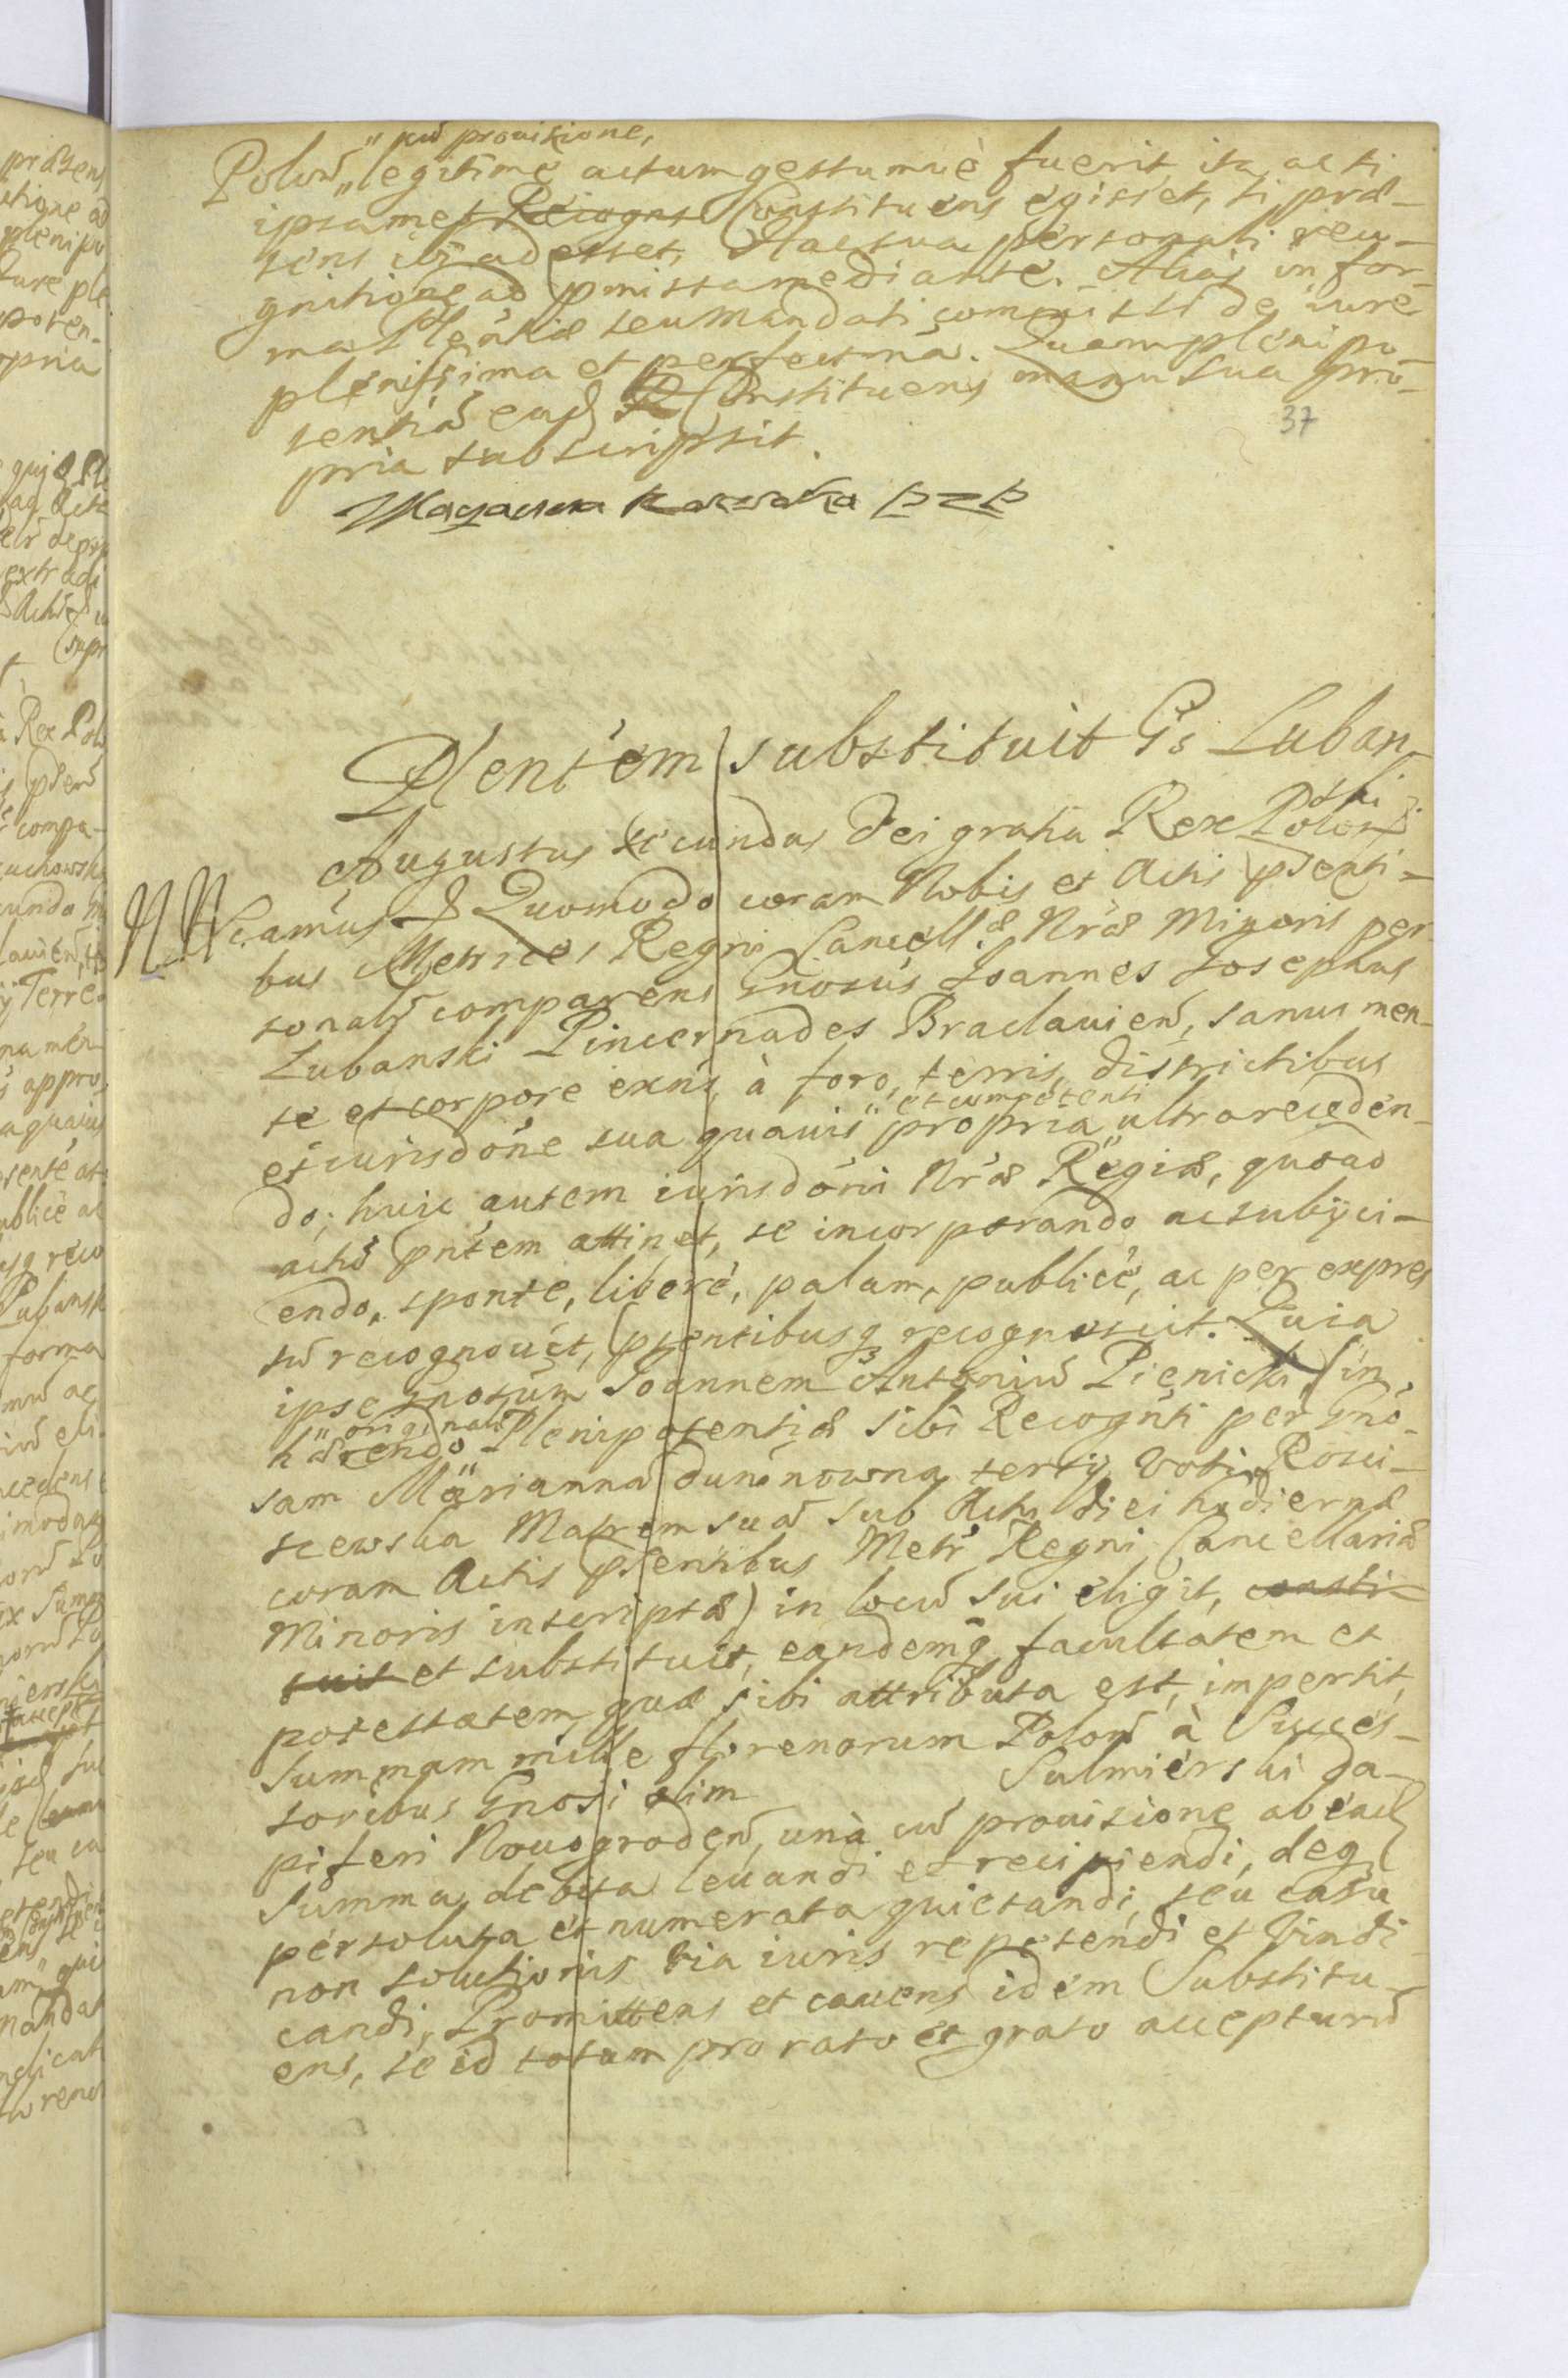 "cũ prouisione,
Poloñ" legitime actum gestumue fuerit ita ac si
ipsamet Recogns Constituens egisset, si præ-
sens ibi adesset, Hac sua personali reco-
gnitione ad pmissa mediante. Alias in for-
ma Plentiæ seu Mandati commissi de iure
plenissima et perfectma. Quam plenipo-
tentiã ead R Constituens manu sua pro-
pria subscripsit.
37
Plentem substituit Gs Luban-
ski
Augustus Secundus Dei gratia Rex Poloñ
NN Scamus Quomodo coram Nobis et Actis psenti-
bus Metrices Regni Cancellæ Nræ Minoris per
sonalr comparens Gnosus Joannes Josephus
Lubanski Pincernades Braclauień, sanus men-
te et corpore exñs, à foro, terris, districtibus
et competenti
et iurisdone sua quauis" propria ultro receden-
do; huic autem iurisdoni Nræ Regiæ, quoad
actũ pntem attinet, se incorporando ac subijci-
endo, sponte, liberè, palam, publicè, ac per expres
sũ recognouit, psentibusq recognoscit. Quia
ipse Gnosum Joannem Antoniũ Pienicki, (in
"originali
hærendo Plenipotentiæ sibi Recognti per Gno-
sam Marianna Duninowna tertij Voti Rosci-
szewska Matrem suã sub Acta diei hodiernæ
coram Actis psentibus Metr Regni Cancellariæ
Minoris inscriptæ) in locũ sui eligit, consti-
tuit et substituit, eandemq facultatem et
potestatem, quæ sibi attributa est, impertit,
Summam mille florenorum Poloñ à Succes-
soribus Gnosi olim Sulmierski Da-
piferi Nouogrodeń, unà cũ prouisione ab ead
Summa, debita leuandi et recipiendi, deq
persoluta et numerata quietandi, seu casu
non solutionis via iuris repetendi et vindi-
candi, Promittens et cauens idem Substitu-
ens, se id totum pro rato et grato accepturũ